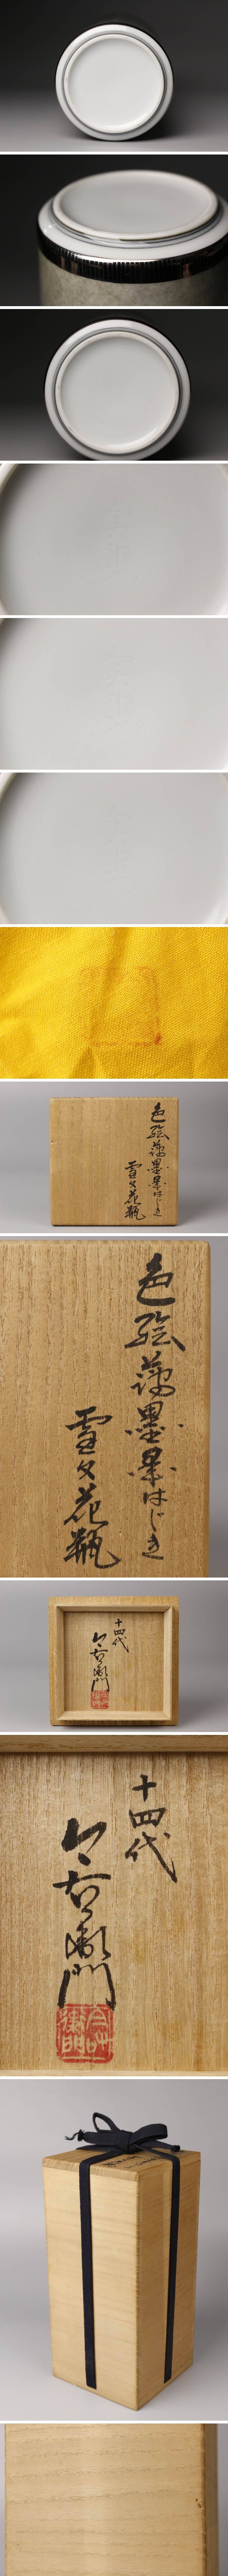 色絵薄墨墨はじき
雪文花瓶
色絵薄墨墨はじき
雪文花瓶
十四代
今右衛門
十四代
今右衛門